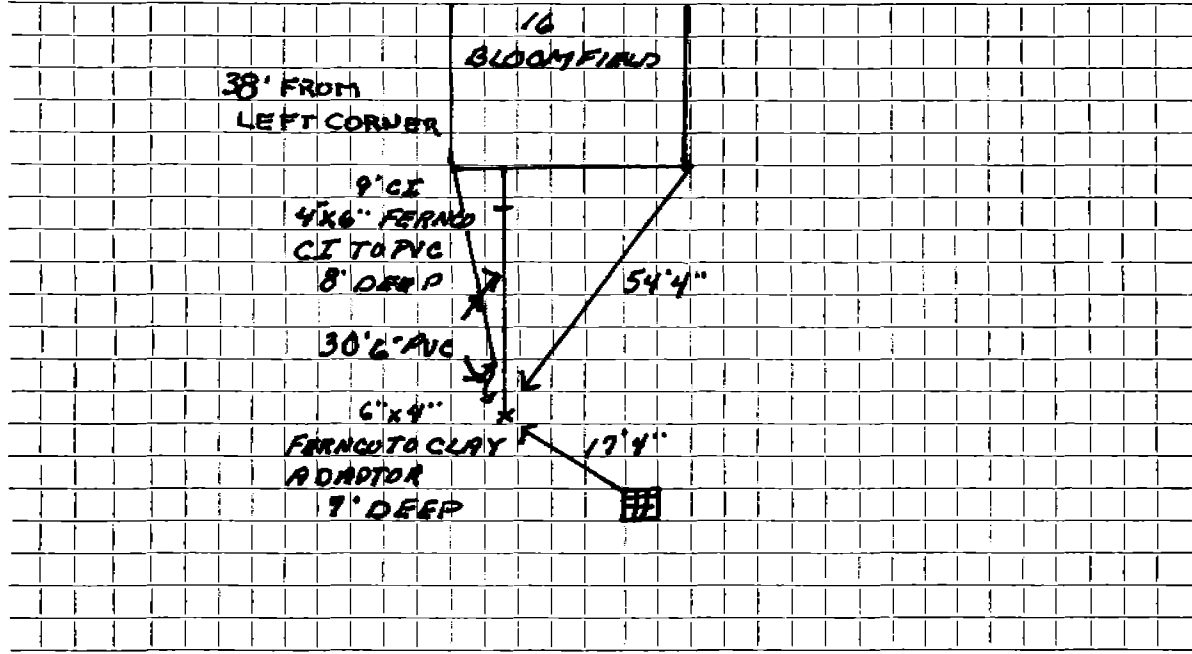 16
BLOOMFIELD
38' FROM
LEFT CORNER
9' CI
4"X6" FERNCO
CI TO PVC
8' DEEP
54'4"
30'6" PVC
6"x4"
FERNCO TO CLAY
ADAPTOR
7' DEEP
17'4"